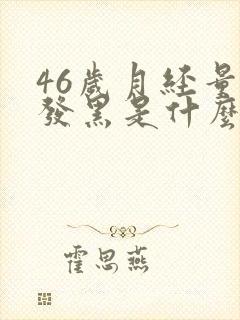 46歲月經量
發黑是什麼
霍思燕